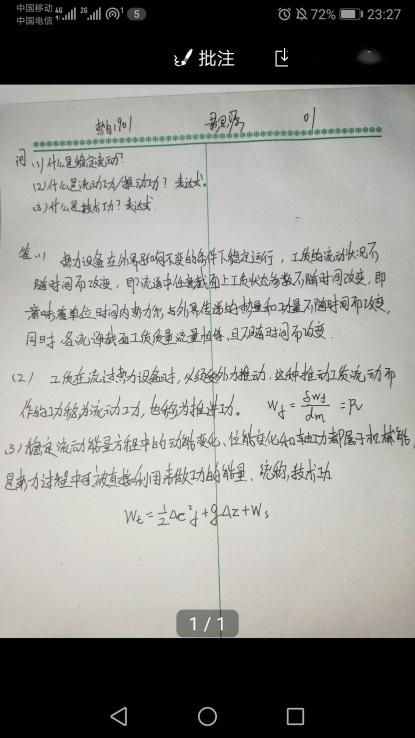 中国移动 4G 2G 1 5 72% 23:27
中国电信
批注
热自1901 01
问 (1)什么是稳定流动?
(2)什么是流动功/推动功? 表达式。
(3)什么是技术功? 表达式
答 (1) 热力设备在外界影响不变的条件下稳定运行,工质的流动状况不
随时间而改变,即流道中任意截面上工质状态参数不随时间改变,即
意味着单位时间内热力系与外界传递的热量和功量不随时间而改变,
同时,各流通截面工质质量流量 且不随时间而改变.
(2) 工质在流过热力设备时,必须受外力推动.这种推动工质流动而
作的功称为流动功,也称为推进功。 Wf = δWf/dm = Pv
3) 稳定流动能量方程中的动能变化、位能变化和轴功都属于机械能,
是热力过程中可被直接利用来做功的能量、统称技术功
Wt = 1/2 Δc²f + gΔz + Ws
1 / 1